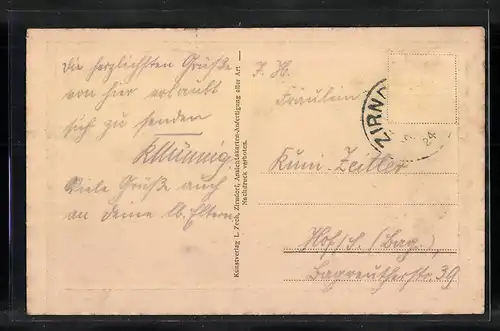 Die herzlichsten Grüße
von hier erlaubt
sich zu senden
Viele Grüße auch
an Deine lb. Eltern
Kunstverlag L. Zeeh, Zirndorf, Ansichtskarten-Anfertigung aller Art
Nachdruck verboten.
Fräulein
ZIRND
24
Kuni Zeitler
Hof/S. (Bay.),
Bayreutherstr. 39